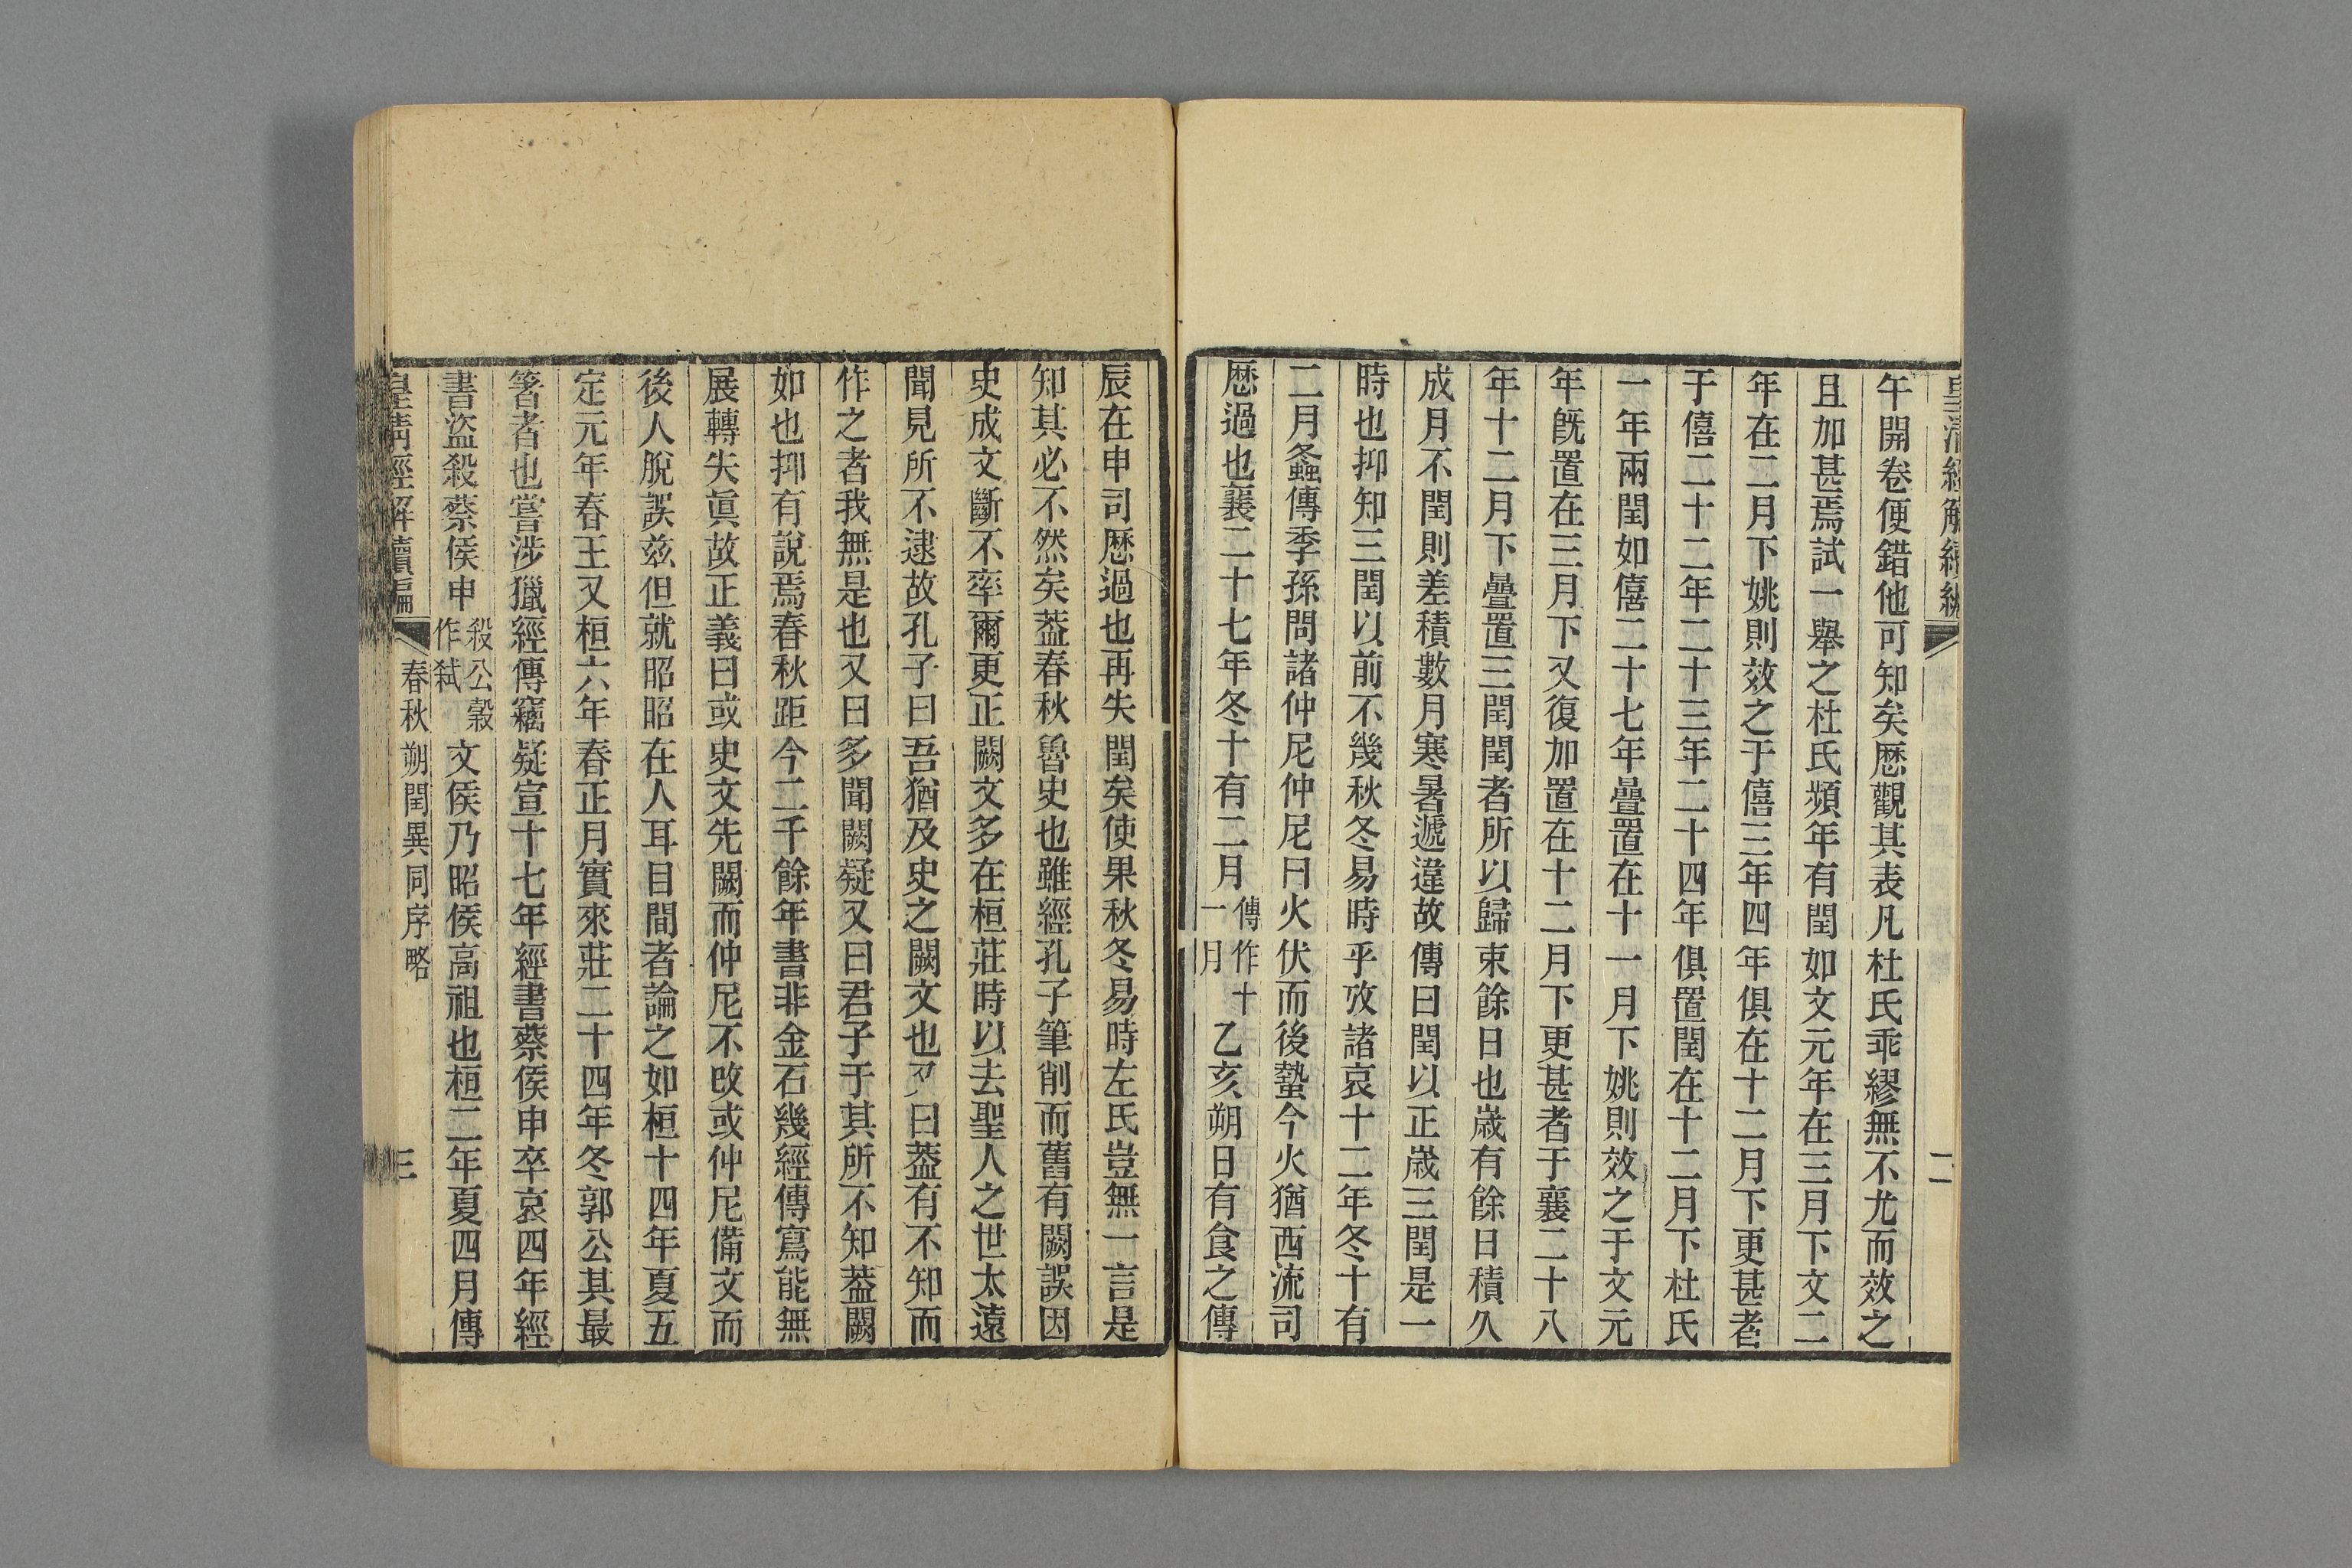 皇清經解續編
二
午開卷便錯他可知矣厯觀其表凡杜氏乖繆無不尤而效之
且加甚焉試一舉之杜氏頻年有閏如文元年在三月下文二
年在二月下姚則效之于僖三年四年俱在十二月下更甚者
于僖二十二年二十三年二十四年俱置閏在十二月下杜氏
一年兩閏如僖二十七年疊置在十一月下姚則效之于文元
年旣置在三月下又復加置在十二月下更甚者于襄二十八
年十二月下疊置三閏閏者所以歸束餘日也歲有餘日積久
成月不閏則差積數月寒暑遞違故傳曰閏以正歲三閏是一
時也抑知三閏以前不幾秋冬易時乎攷諸哀十二年冬十有
二月螽傳季孫問諸仲尼仲尼曰火伏而後蟄今火猶西流司
厯過也襄二十七年冬十有二月傳作十一月乙亥朔日有食之傳
辰在申司厯過也再失閏矣使果秋冬易時左氏豈無一言是
知其必不然矣葢春秋魯史也雖經孔子筆削而舊有闕誤因
史成文斷不率爾更正闕文多在桓莊時以去聖人之世太遠
聞見所不逮故孔子曰吾猶及史之闕文也又曰葢有不知而
作之者我無是也又曰多聞闕疑又曰君子于其所不知葢闕
如也抑有說焉春秋距今二千餘年書非金石幾經傳寫能無
展轉失眞故正義曰或史文先闕而仲尼不改或仲尼備文而
後人脫誤兹但就昭昭在人耳目間者論之如桓十四年夏五
定元年春王又桓六年春正月實來莊二十四年冬郭公其最
箸者也嘗涉獵經傳竊疑宣十七年經書蔡侯申卒哀四年經
書盜殺蔡侯申殺公穀作弑文侯乃昭侯高祖也桓二年夏四月傳
皇清經解續編
春秋朔閏異同序略
三